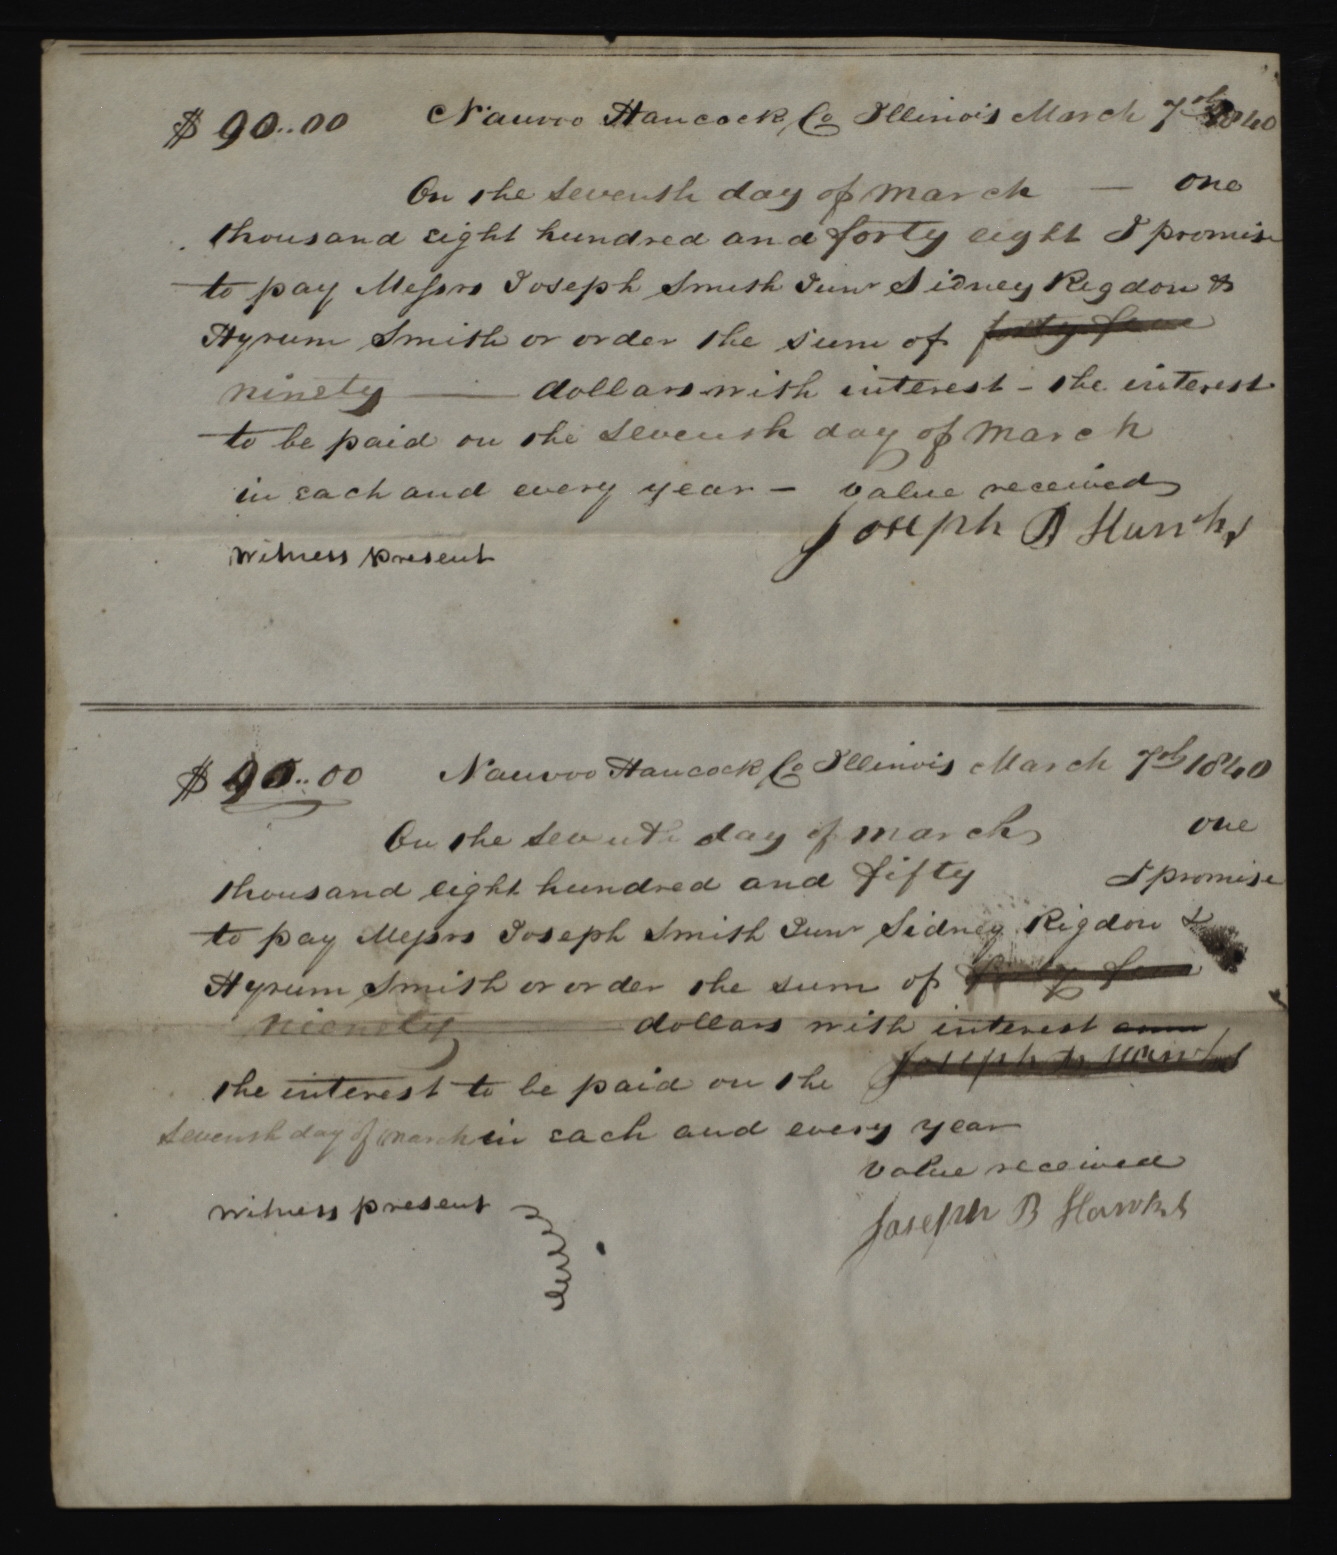 $ 90..00 Nauvoo Hancock Co Illinois March 7th 1840
On the seventh day of march — one
thousand eight hundred and forty eight I promise
to pay Messrs Joseph Smith Junr Sidney Rigdon &
Hyrum Smith or order the sum of forty five
ninety —— dollars with interest - the interest
to be paid on the seventh day of March
in each and every year — value received
Joseph B Hawks
witness present
$ 90..00 Nauvoo Hancock Co Illinois March 7th 1840
On the seventh day of march one
thousand eight hundred and fifty I promise
to pay Messrs Joseph Smith Junr Sidney Rigdon &
Hyrum Smith or order the sum of forty five
nienety —— dollars with interest
the interest to be paid on the Joseph B Hawks
seventh day of march in each and every year
value received
witness present
Joseph B Hawks